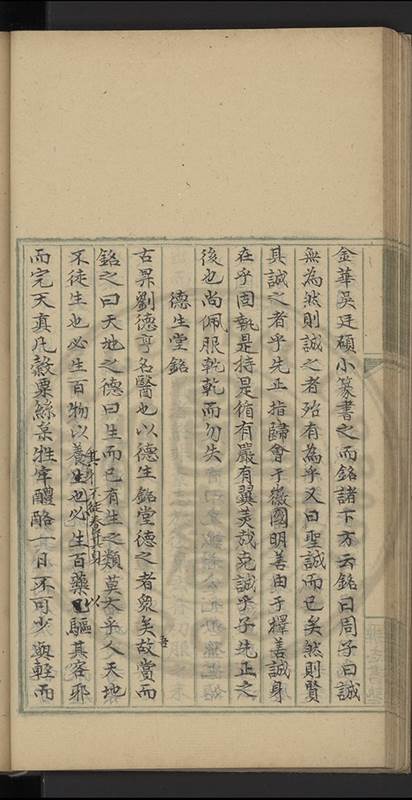 金華吳廷碩小篆書之而銘諸下方云銘曰周子曰誠
無為然則誠之者殆有為乎又曰聖誠而已矣然則賢
其誠之者乎先正指歸會于徽國明善由于擇善誠身
在乎固執是持是循有嚴有翼美哉克誠乎子先正之
後也尚佩服乾乾而勿失
德生堂銘
古昇劉德亨名醫也以德生銘堂德之者眾矣故嘗而
吾
銘之曰天地之德曰生而已有生之類莫大乎人天地
不徒生也必生百物以養其身不徒養其身也必生百藥以驅其客邪
而完天真凡穀粟絲枲牲牢醴酪一日不可少與輕而